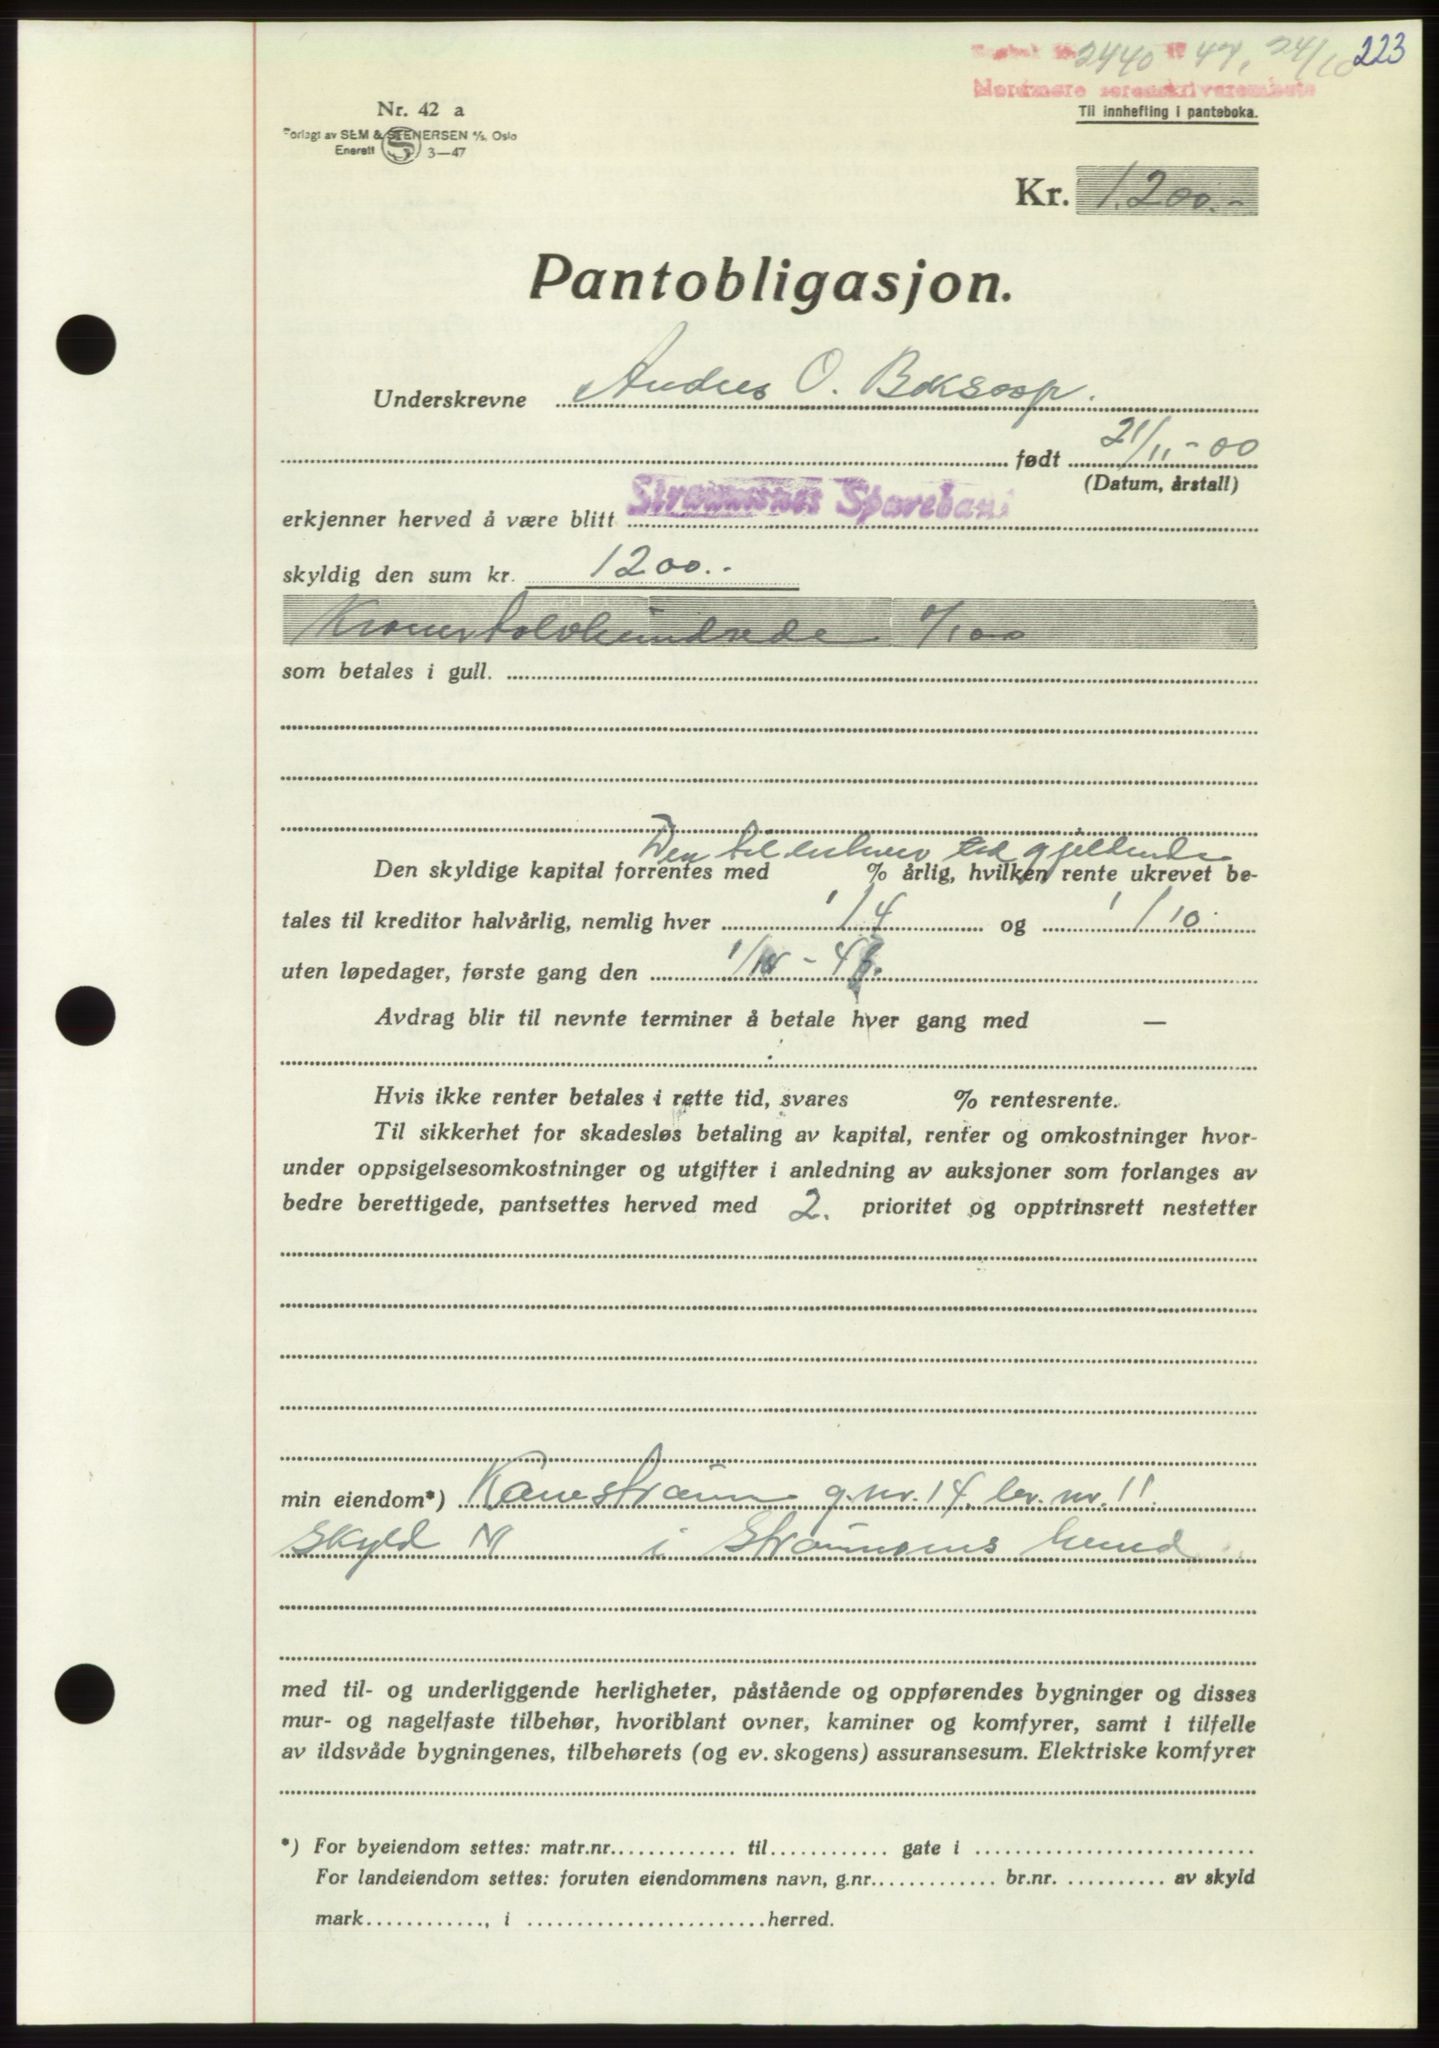 223
2440 47, 24/10
Nordmøre sorenskriverembete
Til innhefting i panteboka.
Nr. 42 a
Forlagt av SEM & STENERSEN A/S, Oslo
Enerett S 3—47
Kr. 1.200.-
Pantobligasjon.
Underskrevne Andres O.
født 21/11-00
(Datum, årstall)
erkjenner herved å være blitt Straumsnes Sparebank
skyldig den sum kr. 1200.-
Kroner tolvhundrede 0/100
som betales i gull.
Den til enhver tid gjeldende
Den skyldige kapital forrentes med % årlig, hvilken rente ukrevet be-
tales til kreditor halvårlig, nemlig hver 1/4 og 1/10
uten løpedager, første gang den
Avdrag blir til nevnte terminer å betale hver gang med —
Hvis ikke renter betales i rette tid, svares % rentesrente.
Til sikkerhet for skadesløs betaling av kapital, renter og omkostninger hvor-
under oppsigelsesomkostninger og utgifter i anledning av auksjoner som forlanges av
bedre berettigede, pantsettes herved med 2. prioritet og opptrinsrett nestetter
min eiendom*) Kanestraum g.nr. 14, br. nr. 11.
Skyld i Straumsnes herred
med til- og underliggende herligheter, påstående og oppførendes bygninger og disses
mur- og nagelfaste tilbehør, hvoriblant ovner, kaminer og komfyrer, samt i tilfelle
av ildsvåde bygningenes, tilbehørets (og ev. skogens) assuransesum. Elektriske komfyrer
*) For byeiendom settes: matr.nr. til gate i
For landeiendom settes: foruten eiendommens navn, g.nr. br.nr. av skyld
mark , i herred.